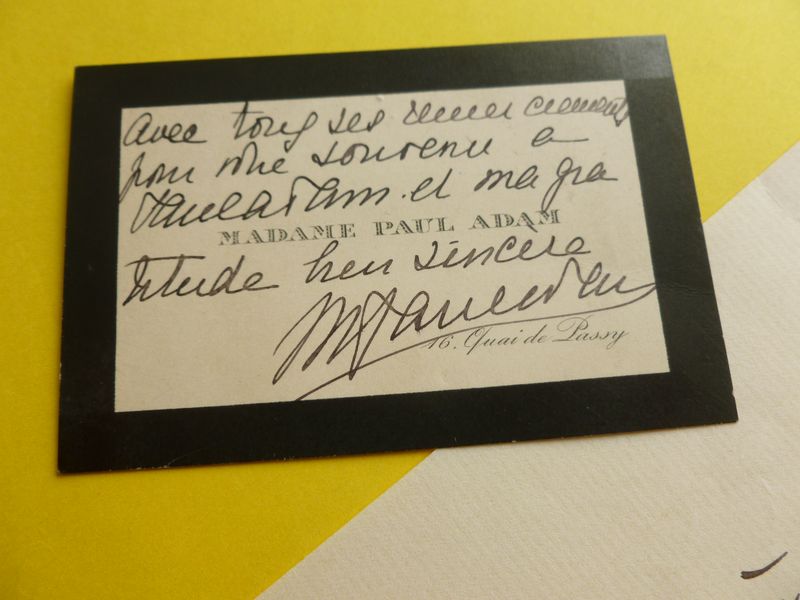 avec tous ses remerciements
pour votre souvenir a
Paul Adam. et ma gra
MADAME PAUL ADAM
titude bien sincère
M Paul Adam
16. Quai de Passy